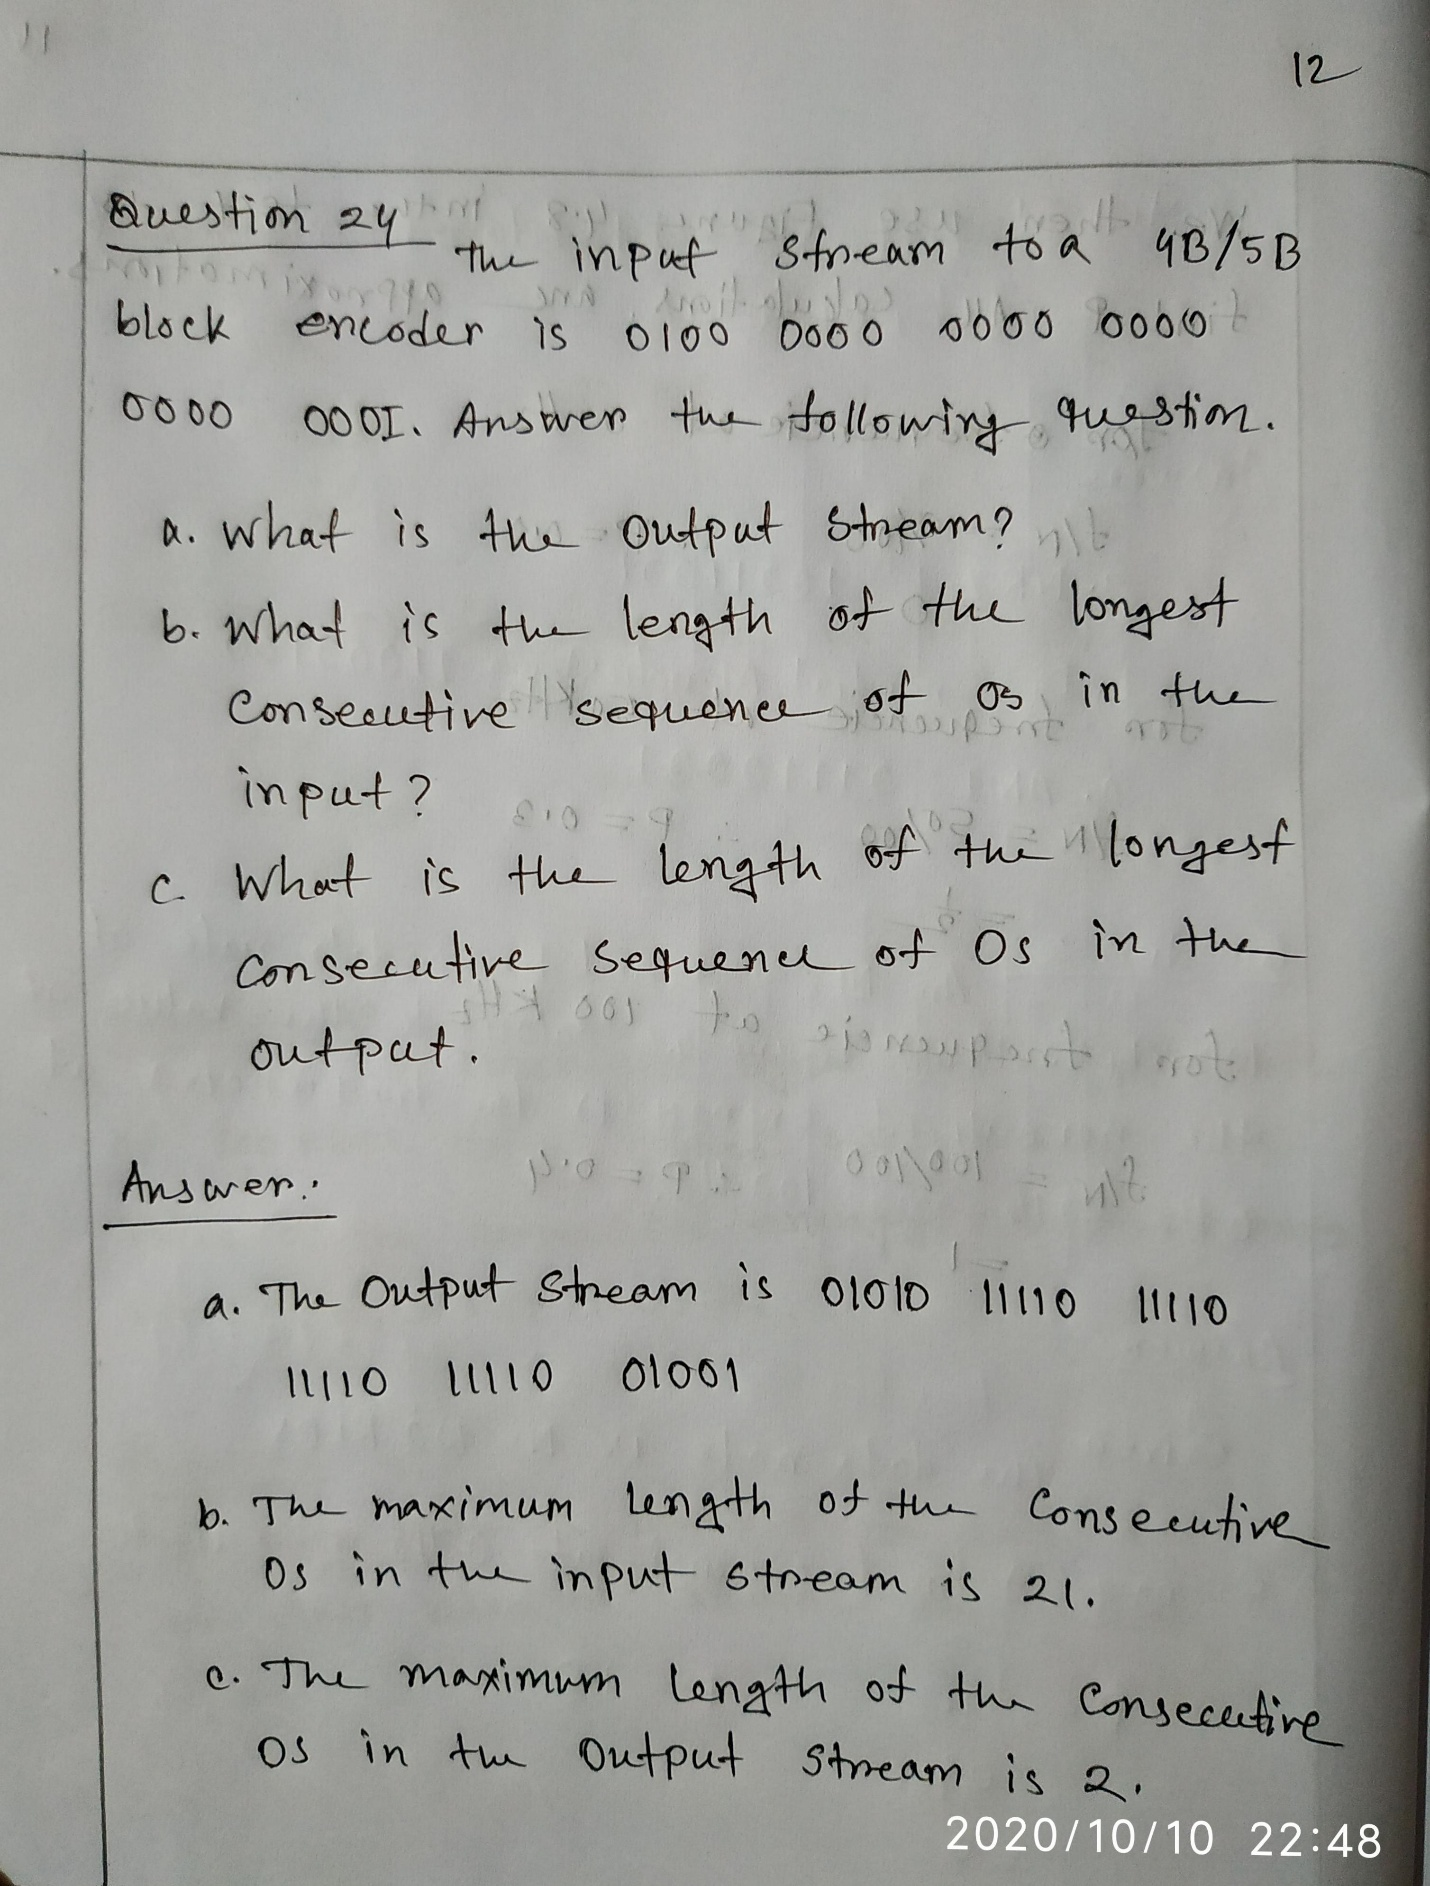 12
Question 24
The input stream to a 4B/5B
block encoder is 0100 0000 0000 0000
0000 0001. Answer the following question.
a. What is the Output Stream?
b. What is the length of the longest
Consecutive sequence of 0s in the
input?
c. What is the length of the longest
consecutive sequence of 0s in the
output.
Answer:
a. The Output Stream is 01010 11110 11110
11110 11110 01001
b. The maximum length of the Consecutive
0s in the input stream is 21.
c. The maximum length of the Consecutive
0s in the Output Stream is 2.
2020/10/10 22:48